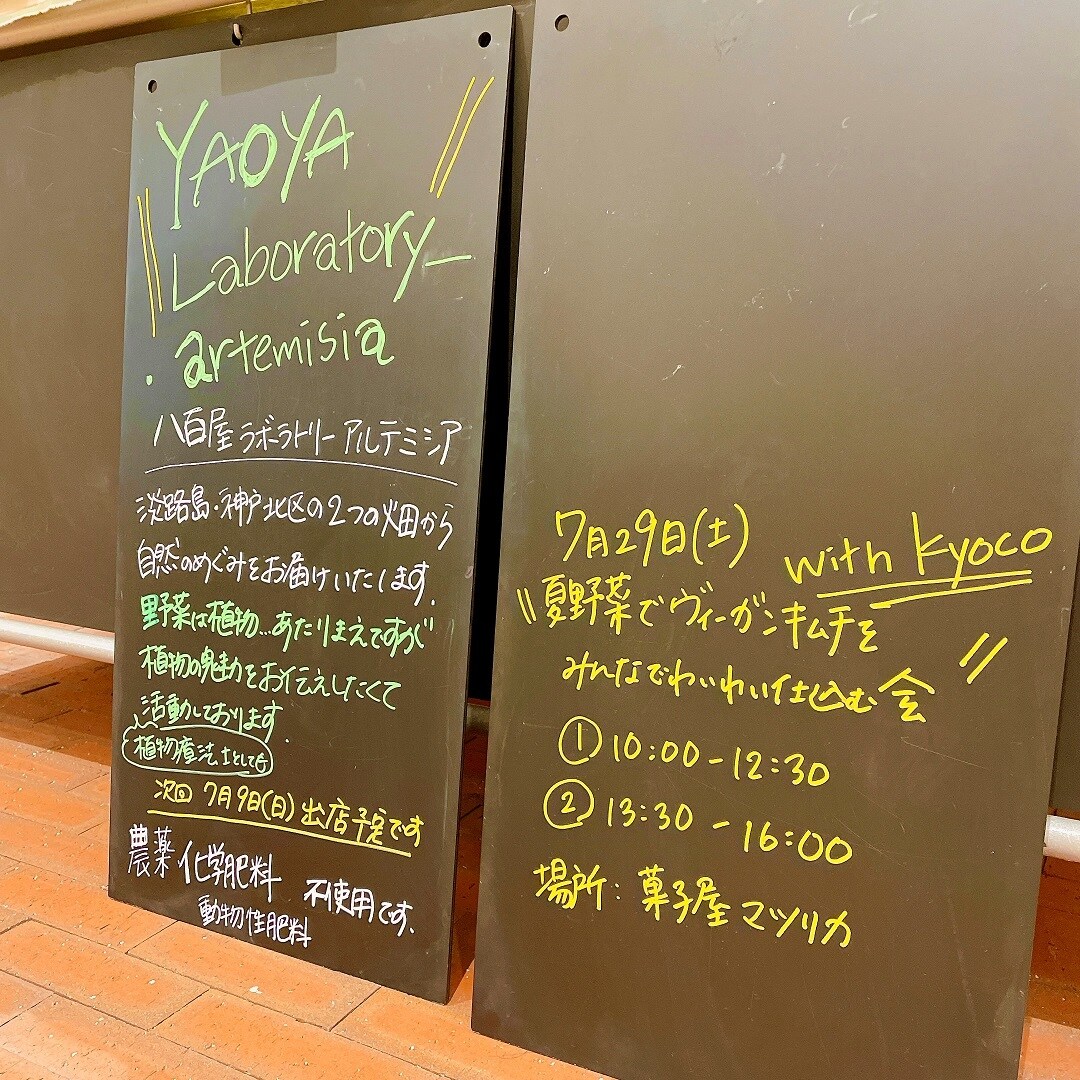 YAOYA
Laboratory_
artemisia
八百屋 ラボラトリー アルテミシア
淡路島・神戸北区の2つの畑から
自然のめぐみをお届けいたします.
野菜は植物…あたりまえですが
植物の魅力をお伝えしたくて
活動しております.
植物療法士としても
次回 7月9日(日) 出店予定です
農薬 化学肥料 不使用です.
動物性肥料
7月29日(土) with kyoco
夏野菜でヴィーガンキムチを
みんなでわいわい仕込む会
① 10:00-12:30
② 13:30-16:00
場所: 菓子屋マツリカ